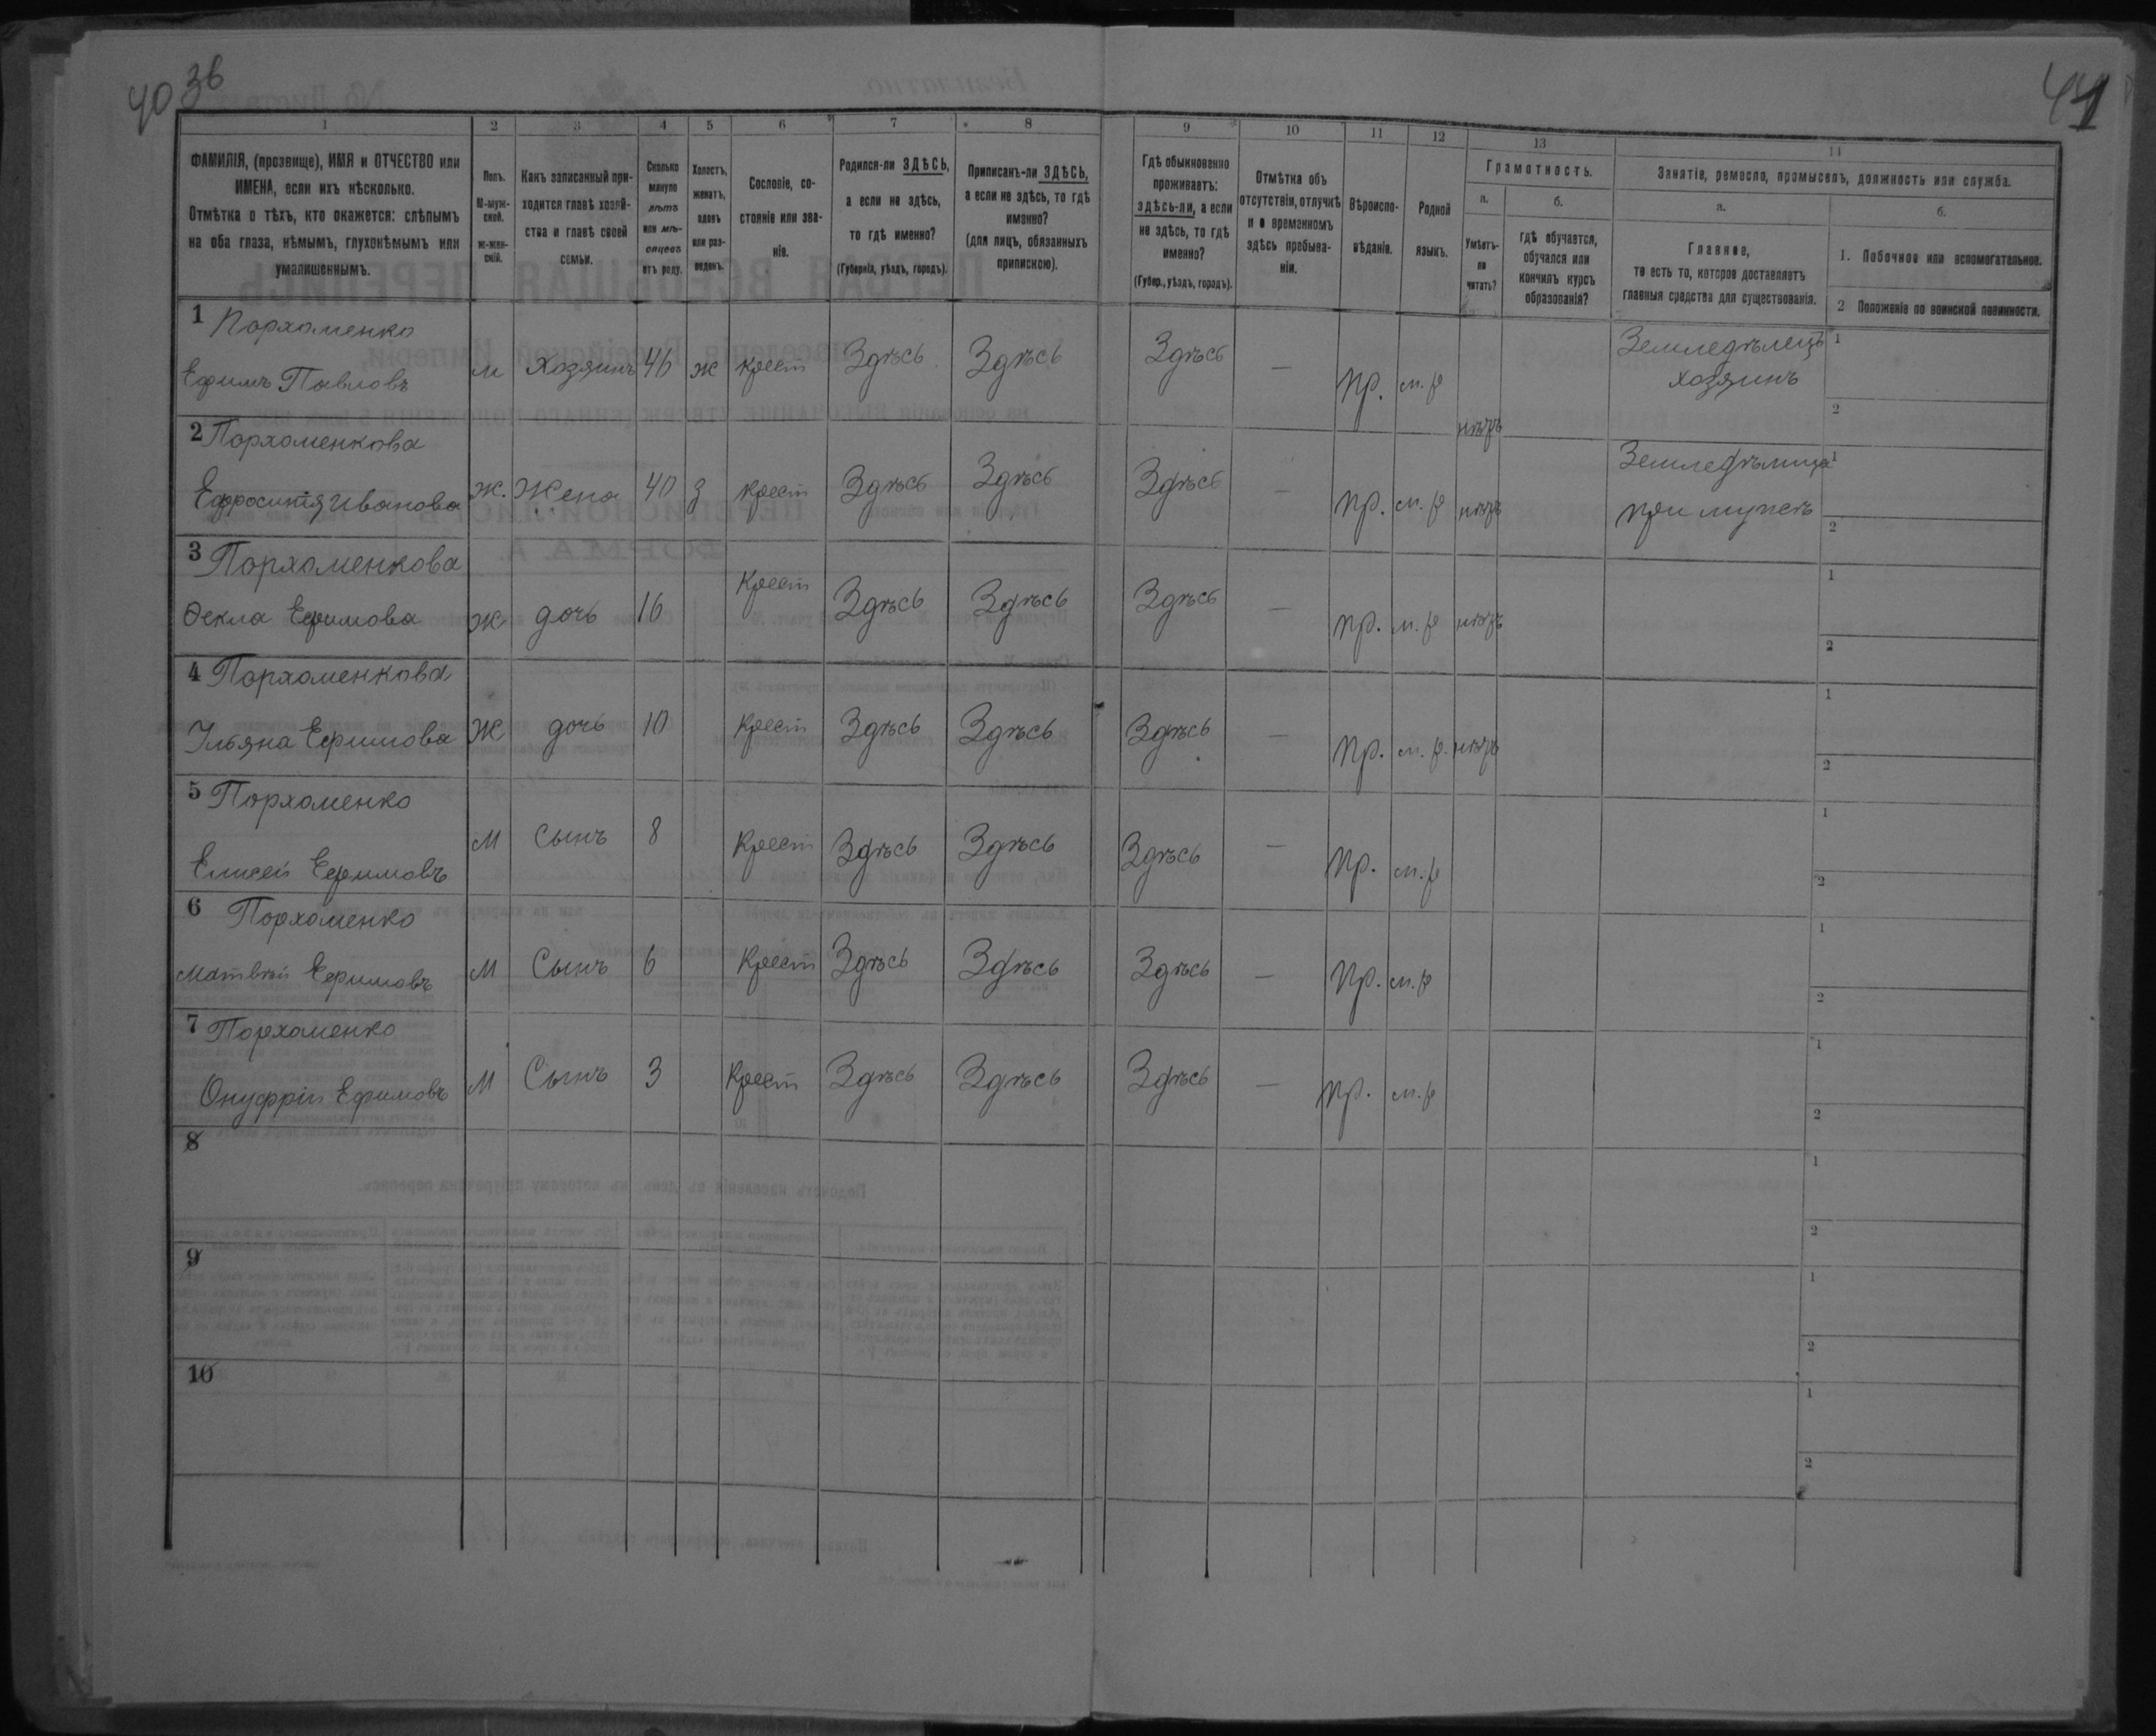 40 36
41
1 2 3 4 5 6 7 8 9 10 11 12 13 14
ФАМИЛІЯ, (прозвище), ИМЯ и ОТЧЕСТВО или ИМЕНА, если ихъ нѣсколько.
Отмѣтка о тѣхъ, кто окажется: слѣпымъ на оба глаза, нѣмымъ, глухонѣмымъ или умалишеннымъ.
Полъ. М-муж-ской. ж-жен-скій.
Какъ записанный при-ходится главѣ хозяй-ства и главѣ своей семьи.
Сколько минуло лѣтъ или мѣ-сяцевъ отъ роду.
Холостъ, женатъ, вдовъ или раз-веденъ.
Сословіе, со-стояніе или зва-ніе.
Родился-ли ЗДѢСЬ, а если не здѣсь, то гдѣ именно? (Губернія, уѣздъ, городъ).
Приписанъ-ли ЗДѢСЬ, а если не здѣсь, то гдѣ именно? (для лицъ, обязанныхъ припискою).
Гдѣ обыкновенно проживаетъ: здѣсь-ли, а если не здѣсь, то гдѣ именно? (Губер., уѣздъ, городъ).
Отмѣтка объ отсутствіи, отлучкѣ и о временномъ здѣсь пребыва-ніи.
Вѣроиспо-вѣданіе.
Родной языкъ.
Грамотность.
а. Умѣетъ-ли читать?
б. гдѣ обучается, обучался или кончилъ курсъ образованія?
Занятіе, ремесло, промыселъ, должность или служба.
а. Главное, то есть то, которое доставляетъ главныя средства для существованія.
б. 1. Побочное или вспомогательное.
2 Положеніе по воинской повинности.
1 Пархоменко
Ефимъ Павловъ м Хозяинъ 46 ж крест Здѣсь Здѣсь Здѣсь — пр. м.р нѣтъ Земледѣлецъ хозяинъ 1 2
2 Пархоменкова
Ефросинія Иванова ж. Жена 40 з крест Здѣсь Здѣсь Здѣсь — пр. м.р нѣтъ Земледѣлица при мужѣ 1 2
3 Пархоменкова
Ѳекла Ефимова ж дочь 16 Крест Здѣсь Здѣсь Здѣсь — пр. м.р нѣтъ 1 2
4 Пархоменкова
Ульяна Ефимова Ж дочь 10 Крест Здѣсь Здѣсь Здѣсь — пр. м.р. нѣтъ 1 2
5 Пархоменко
Елисей Ефимовъ М Сынъ 8 Крест Здѣсь Здѣсь Здѣсь — пр. м.р 1 2
6 Пархоменко
Матвѣй Ефимовъ М Сынъ 6 Крест Здѣсь Здѣсь Здѣсь — пр. м.р 1 2
7 Пархоменко
Онуфрій Ефимовъ М Сынъ 3 Крест Здѣсь Здѣсь Здѣсь — пр. м.р 1 2
8 1 2
9 1 2
10 1 2